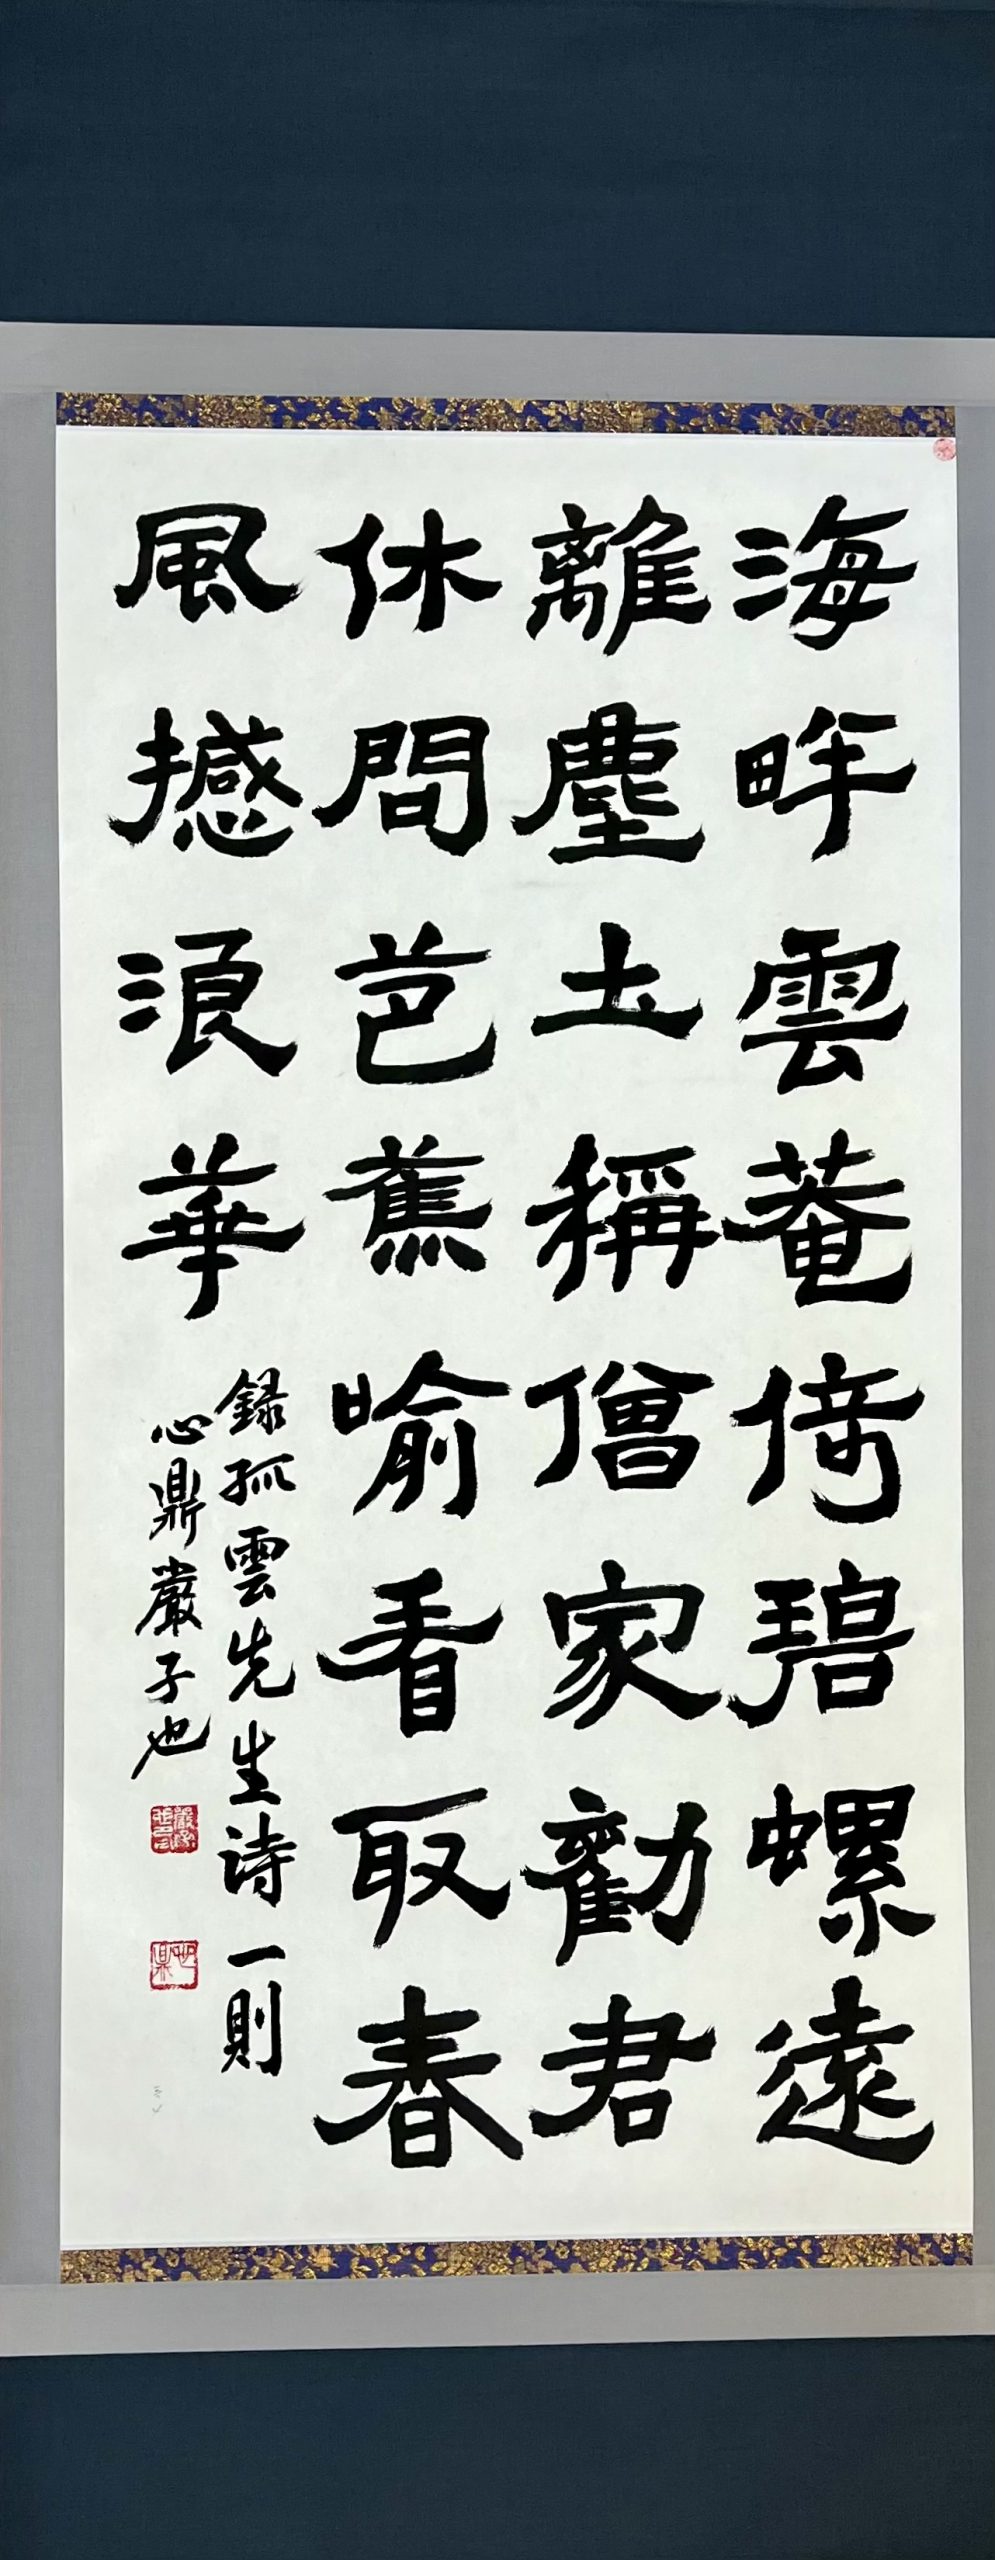 海畔雲菴倚碧螺遠
離塵土稱僧家勸君
休問芭蕉喻看取春
風撼浪華
録孤雲先生詩一則
心鼎嚴子也